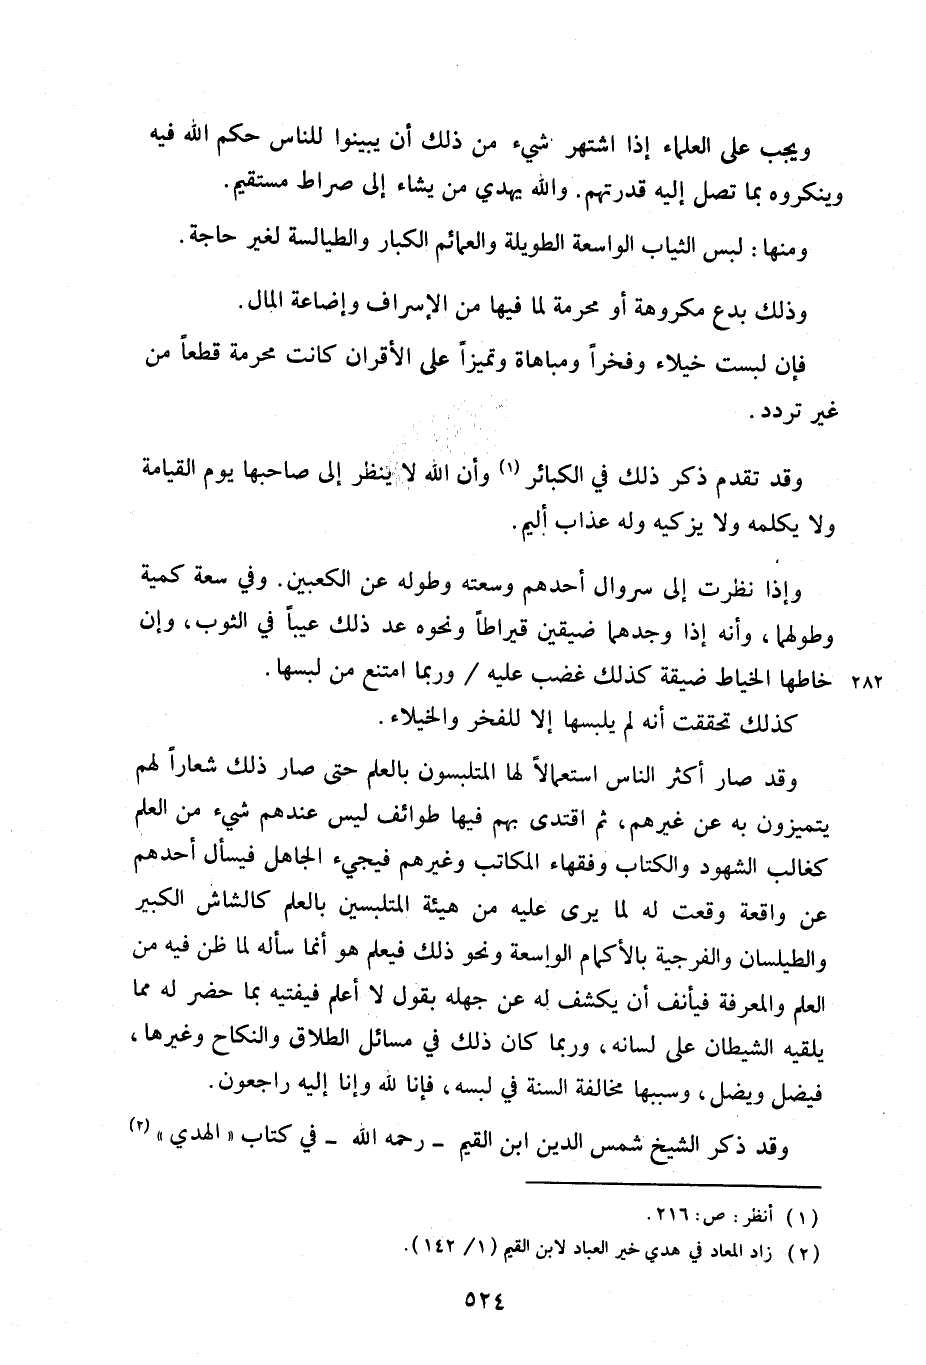 ويجب على العلماء إذا اشتهر شيء من ذلك أن يبينوا للناس حكم الله فيه
وينكروه بما تصل إليه قدرتهم. والله يهدي من يشاء إلى صراط مستقيم.
ومنها: لبس الثياب الواسعة الطويلة والعمائم الكبار والطيالسة لغير حاجة.
وذلك بدع مكروهة أو محرمة لما فيها من الإسراف وإضاعة المال.
فإن لبست خيلاء وفخراً ومباهاة وتميزاً على الأقران كانت محرمة قطعاً من
غير تردد.
وقد تقدم ذكر ذلك في الكبائر (١) وأن الله لا ينظر إلى صاحبها يوم القيامة
ولا يكلمه ولا يزكيه وله عذاب أليم.
وإذا نظرت إلى سروال أحدهم وسعته وطوله عن الكعبين. وفي سعة كمية
وطولهما، وأنه إذا وجدهما ضيقين قيراطاً ونحوه عد ذلك عيباً في الثوب، وإن
خاطها الخياط ضيقة كذلك غضب عليه / وربما امتنع من لبسها. ٢٨٢
كذلك تحققت أنه لم يلبسها إلا للفخر والخيلاء.
وقد صار أكثر الناس استعمالاً لها المتلبسون بالعلم حتى صار ذلك شعاراً لهم
يتميزون به عن غيرهم، ثم اقتدى بهم فيها طوائف ليس عندهم شيء من العلم
كغالب الشهود والكتاب وفقهاء المكاتب وغيرهم فيجيء الجاهل فيسأل أحدهم
عن واقعة وقعت له لما يرى عليه من هيئة المتلبسين بالعلم كالشاش الكبير
والطيلسان والفرجية بالأكمام الواسعة ونحو ذلك فيعلم هو أنما سأله لما ظن فيه من
العلم والمعرفة فيأنف أن يكشف له عن جهله بقول لا أعلم فيفتيه بما حضر له مما
يلقيه الشيطان على لسانه، وربما كان ذلك في مسائل الطلاق والنكاح وغيرها،
فيضل ويضل، وسببها مخالفة السنة في لبسه، فإنا لله وإنا إليه راجعون.
وقد ذكر الشيخ شمس الدين ابن القيم - رحمه الله - في كتاب «الهدي» (٢)
(١) أنظر: ص: ٢١٦.
(٢) زاد المعاد في هدي خير العباد لابن القيم (١/ ١٤٢).
٥٢٤